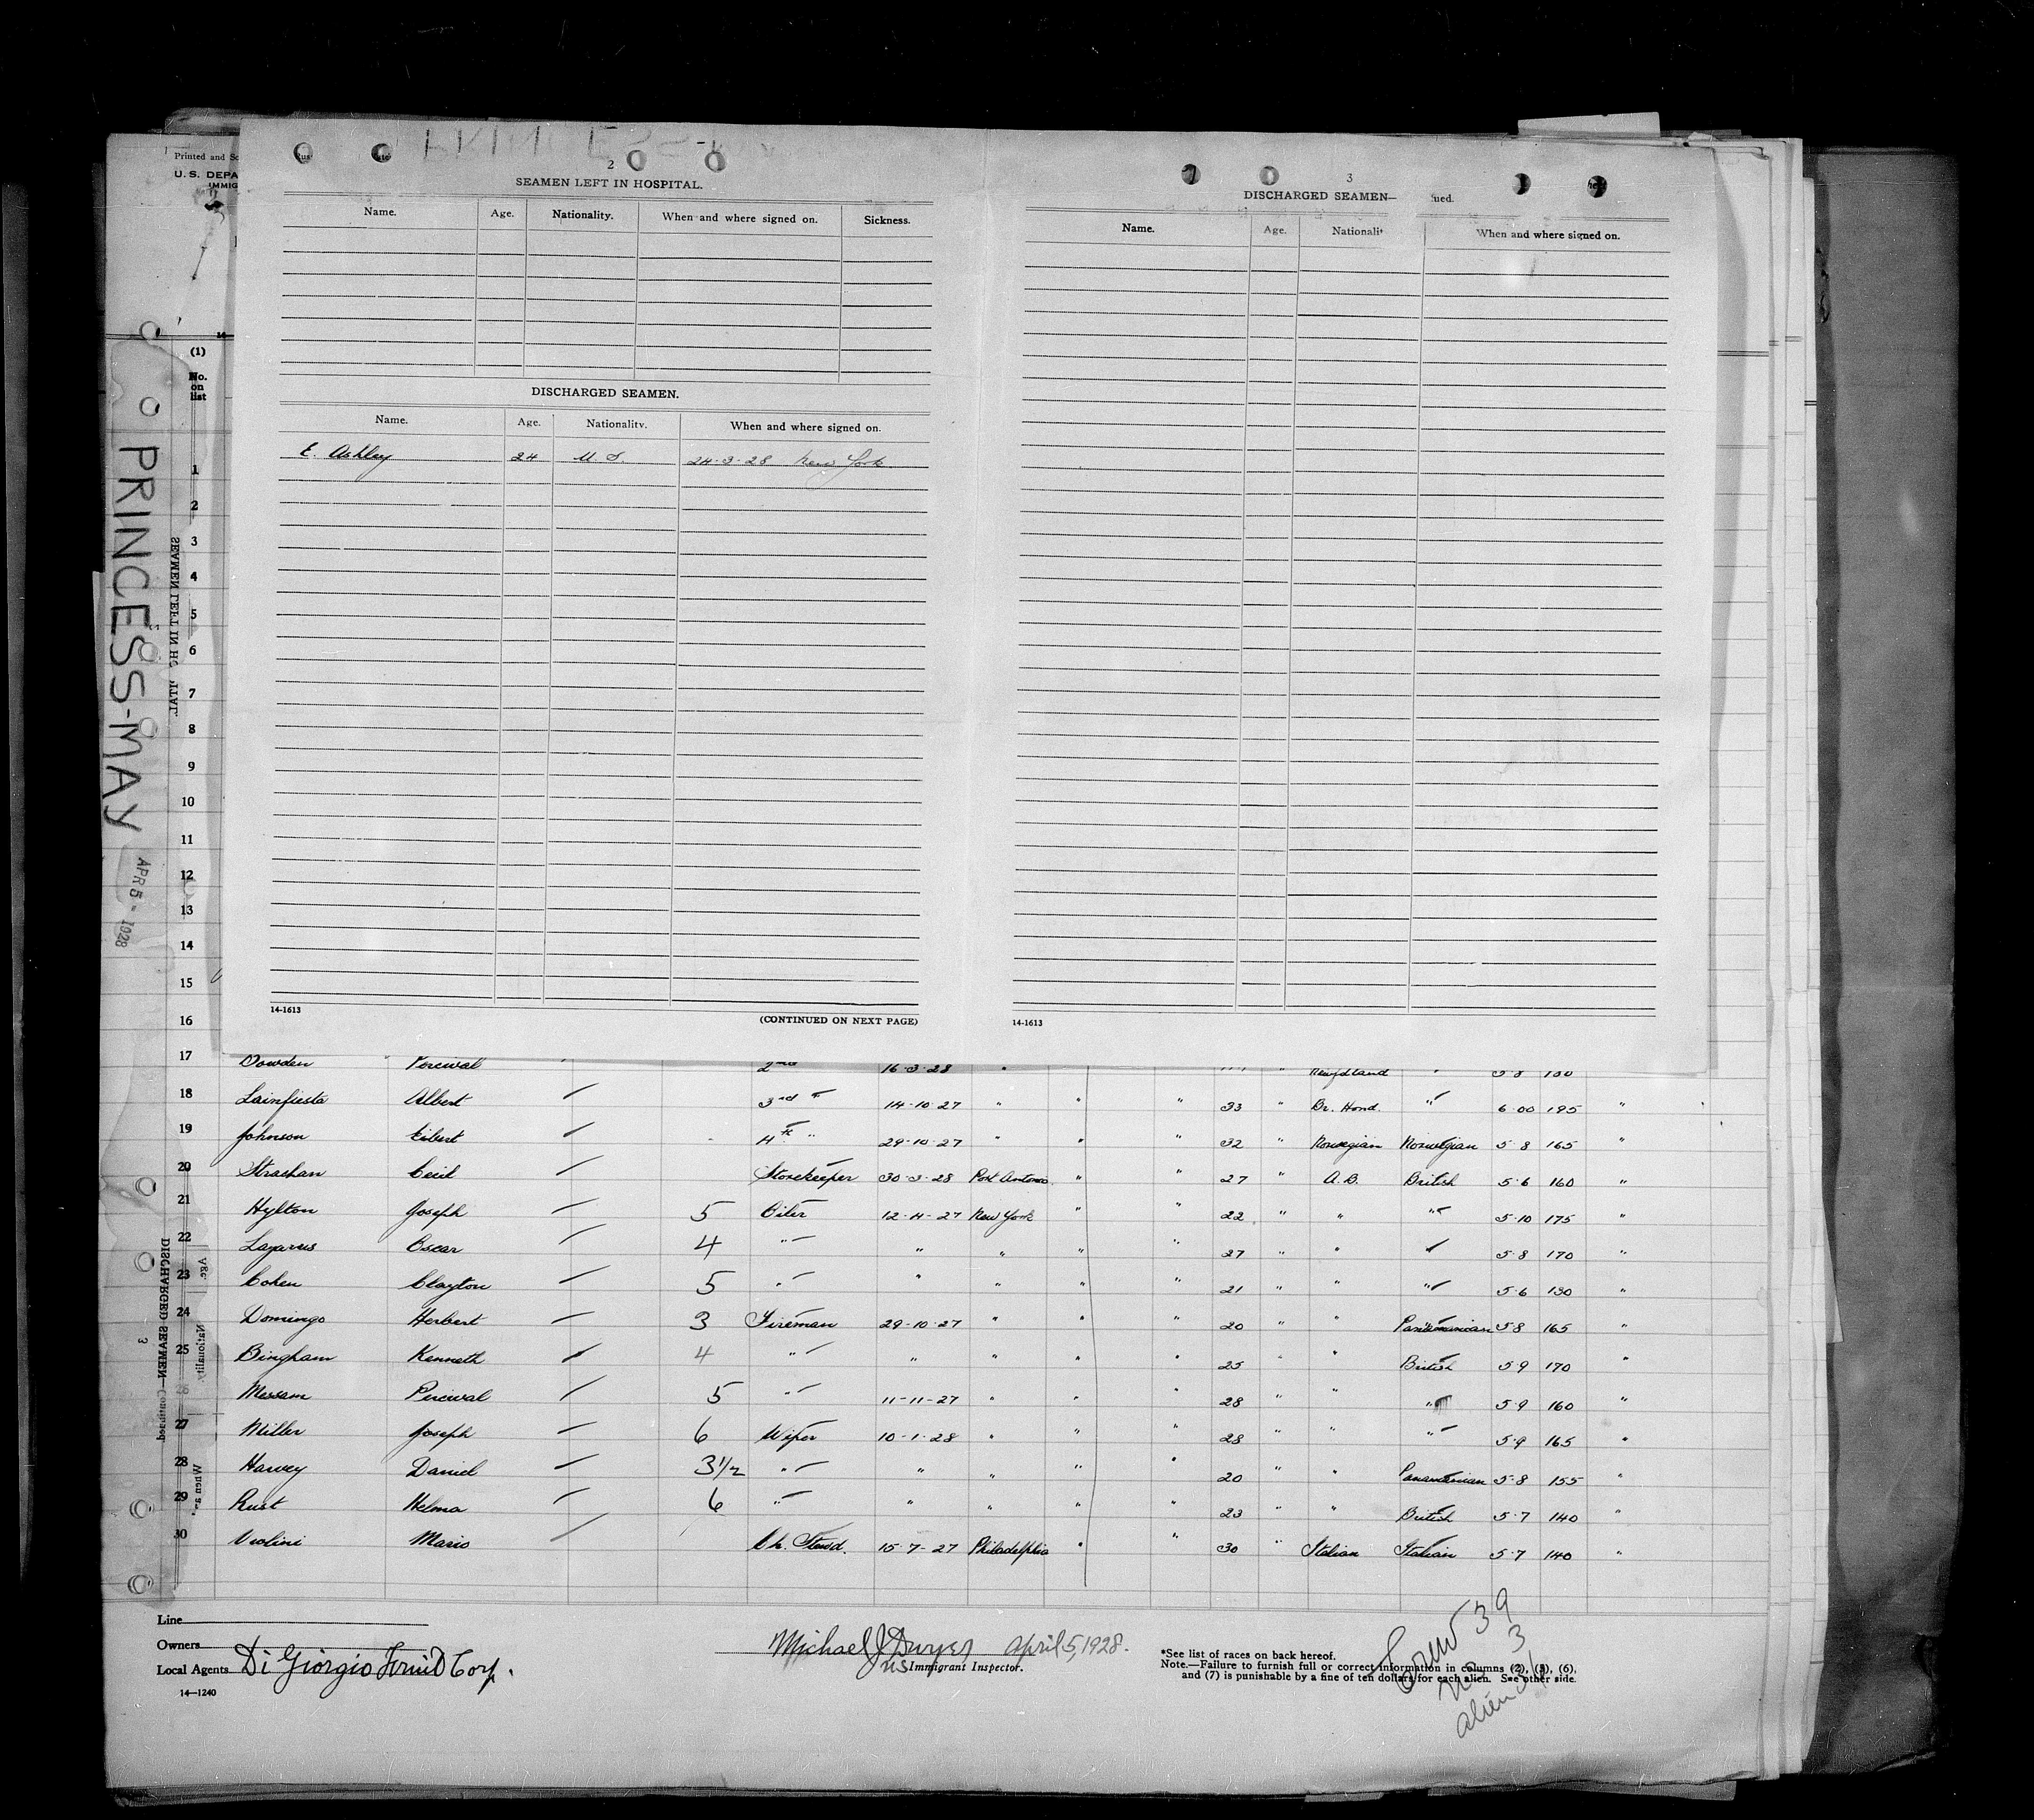 Printed and
U. S. DEPA
IMMIG
PRINCESS-MAY
APR 5 - 1928
2
SEAMEN LEFT IN HOSPITAL.
Name. Age. Nationality. When and where signed on. Sickness.
DISCHARGED SEAMEN.
Name. Age. Nationality. When and where signed on.
E. Ashley 24 U. S. 24-3-28 New York
14-1613
(CONTINUED ON NEXT PAGE)
3
DISCHARGED SEAMEN—
ued.
Name. Age. Nationalit When and where signed on.
14-1613
(1)
No.
on
list
1
2
3
4
5
6
7
8
9
10
11
12
13
14
15
16
17 Dowden Percival 2nd 16-3-28 " Newfdland " 5-8
18 Lainfiesta Albert 3rd " 14-10-27 " " " 33 " Br. Hond. " 6-00 195 "
19 Johnson Eibert 4th " 29-10-27 " " " 32 " Norwegian Norwegian 5-8 165 "
20 Strachan Cecil Storekeeper 30-3-28 Port Antonio " " 27 " A.B. British 5-6 160 "
21 Hylton Joseph 5 Oiler 12-11-27 New York " " 22 " " " 5-10 175 "
22 Lazarus Oscar 4 " " " " " 27 " " 5-8 170 "
23 Cohen Clayton 5 " " " " " 21 " " " 5-6 130 "
24 Domingo Herbert 3 Fireman 29-10-27 " " " 20 " " Panamanian 5-8 165 "
25 Bingham Kenneth 4 " " " " " 25 " " British 5-9 170 "
26 Messam Percival 5 " 11-11-27 " " " 28 " " " 5-9 160 "
27 Miller Joseph 6 Wiper 10-1-28 " " " 28 " " " 5-9 165 "
28 Harvey Daniel 3 1/2 " " " " " 20 " " Panamanian 5-8 155 "
29 Rust Helma 6 " " " " " 23 " " British 5-7 140 "
30 Violini Mario Ch. Stewd. 15-7-27 Philadelphia " " 30 " Italian Italian 5-7 140 "
SEAMEN LEFT IN HO ITAL.
DISCHARGED SEAMEN—Continued.
3
Nationality.
Line
Owners
Local Agents Di Giorgio Fruit Corp.
14—1240
Michael J Dwyer April 5, 1928.
US Immigrant Inspector.
*See list of races on back hereof.
Note.—Failure to furnish full or correct information in columns (2), (3), (6),
and (7) is punishable by a fine of ten dollars for each alien. See other side.
Crew 39
3
alien